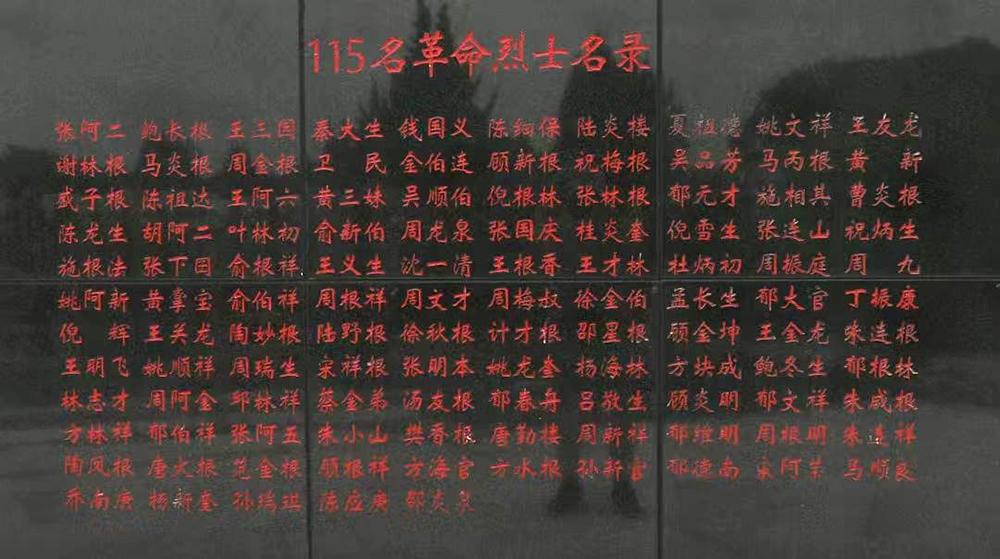 115名革命烈士名录
张阿二 鲍长根 王三国 秦大生 钱国义 陈细保 陆炎楼 夏祖德 姚文祥 王友龙
谢林根 马炎根 周金根 卫民 金伯连 顾新根 祝梅根 吴品芳 马丙根 黄新
戚子根 陈祖达 王阿六 黄三妹 吴顺伯 倪根林 张林根 郁元才 施相其 曹炎根
陈龙生 胡阿二 叶林初 俞新伯 周龙泉 张国庆 桂炎奎 倪雪生 张连山 祝炳生
施根法 张下囝 俞根祥 王义生 沈一清 王根香 王才林 杜炳初 周振庭 周九
姚阿新 黄掌宝 俞伯祥 周根祥 周文才 周梅叔 徐金伯 孟长生 郁大官 丁振康
倪辉 王关龙 陶妙根 陆野根 徐秋根 计才根 邵星根 顾金坤 王金龙 朱连根
王明飞 姚顺祥 周瑞生 宋祥根 张明本 姚龙奎 杨海林 方块成 鲍冬生 郁根林
林志才 周阿金 邱林祥 蔡金弟 汤友根 郁春舟 吕敬生 顾炎明 郁文祥 朱咸根
方林祥 郁伯祥 张阿五 朱小山 樊香根 唐勤楼 周新祥 郁维明 周根明 朱连祥
陶凤根 唐火根 范金根 顾根祥 方海官 方水根 孙新官 郁德南 阿 马顺良
乔南庚 杨新奎 孙瑞琪 陈应庚 邵炎